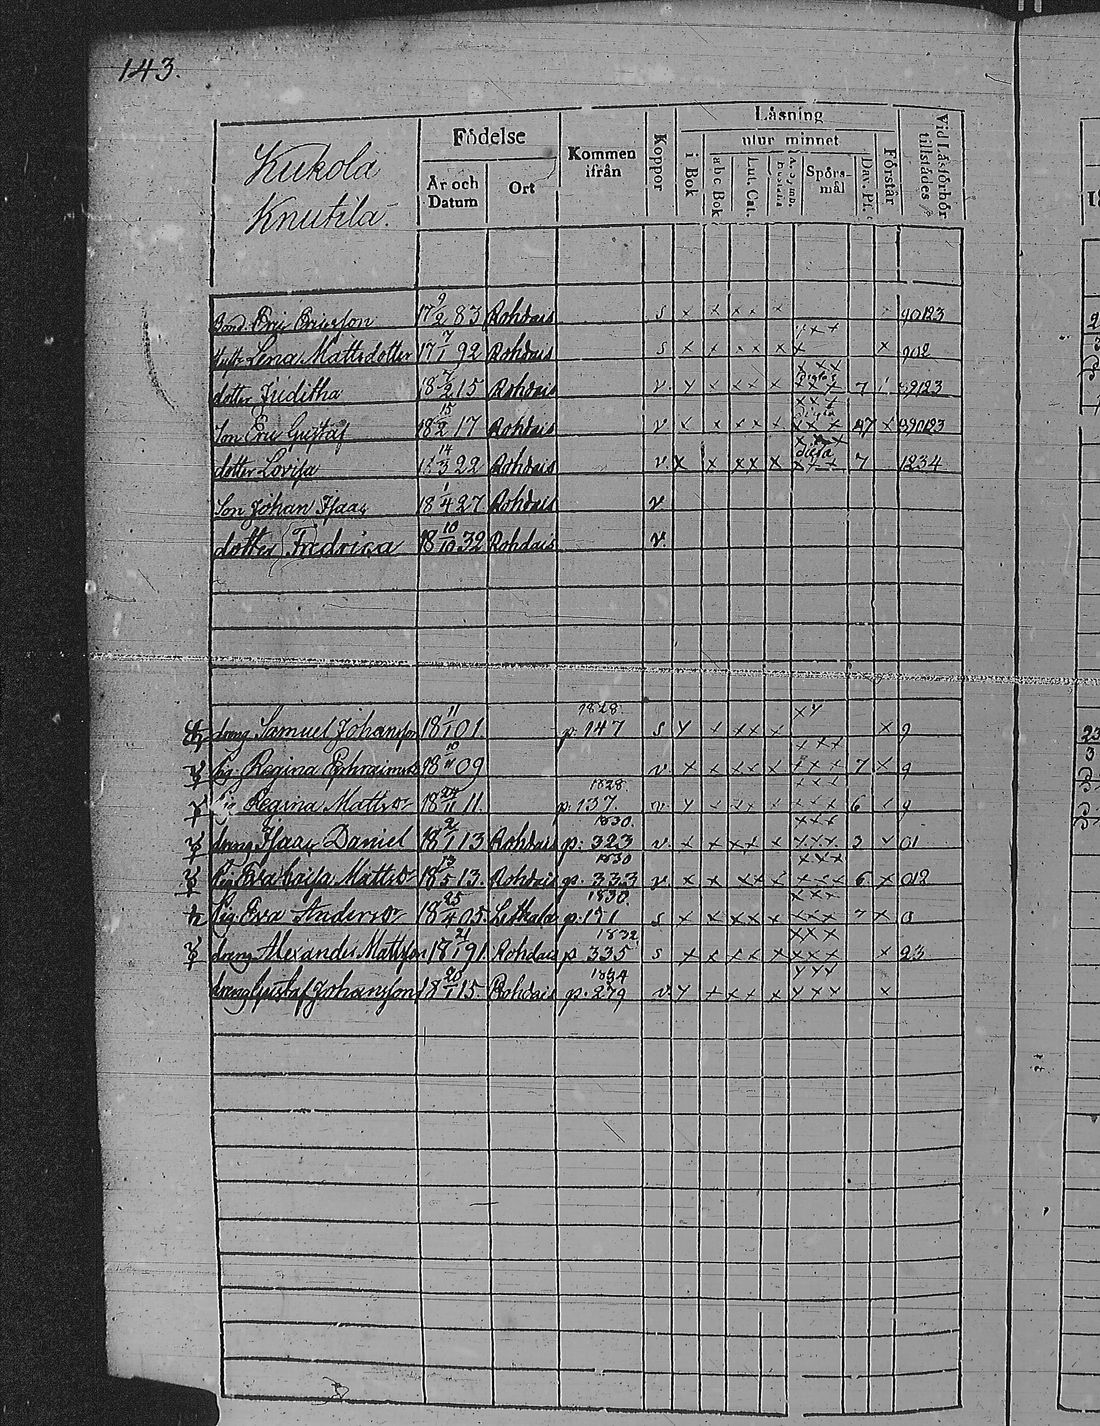 143.
Kukola
Knutila.
Födelse
År och Datum
Ort
Kommen ifrån
Koppor
Läsning
utur minnet
i Bok
abc Bok
Lut. Cat.
Spörs-mål
Dav. Ps.
Förstår
Vid Läsförhör tillstädes
Bond. Eric Ericsson 17 9/2 83 Rohdais s x x x x x 90123
Hust. Lena Mattsdotter 17 7/1 92 Rohdais s x x x x x x x 902
dotter Juditha 18 7/2 15 Rohdais v. x x x x x 7 89123
Son Eric Gustaf 18 15/2 17 Rohdais v x x x x x x x x 47 x 890123
dotter Lovisa 18 14/3 22 Rohdais v. x x x x x x x x 7 1234
Son Johan Isaac 18 1/4 27 Rohdais v
dotter Fredrica 18 10/10 32 Rohdais v.
dreng Samuel Johansson 18 11/1 01 1828. p. 147 s x x x x x x 9
Pig. Regina Ephraimsd 18 09 v. x x x x x x x x 7 x 9
Pig Regina Mattsdr 18 24/11 11. 1828. p. 137. v x x x x x x x x 6 x 9
dreng Isaac Daniel 18 2/1 13 Rohdais 1830. p. 323 v. x x x x x x x x 3 x 01
Pig Eva Caisa Mattsdr 18 13/5 13. Rohdais 1830 p. 333 v. x x x x x x x x 6 x 012
Pig. Eva Andersdr 18 25/4 05. Lethala 1830. p. 151 s x x x x x x x x 7 x 0
dreng Alexander Mattsson 18 21/1 91. Rohdais 1832 p 335 s x x x x x x x x x 23
dreng Gustaf Johansson 18 20/1 15. Rohdais 1834 p. 279 v. x x x x x x x x x